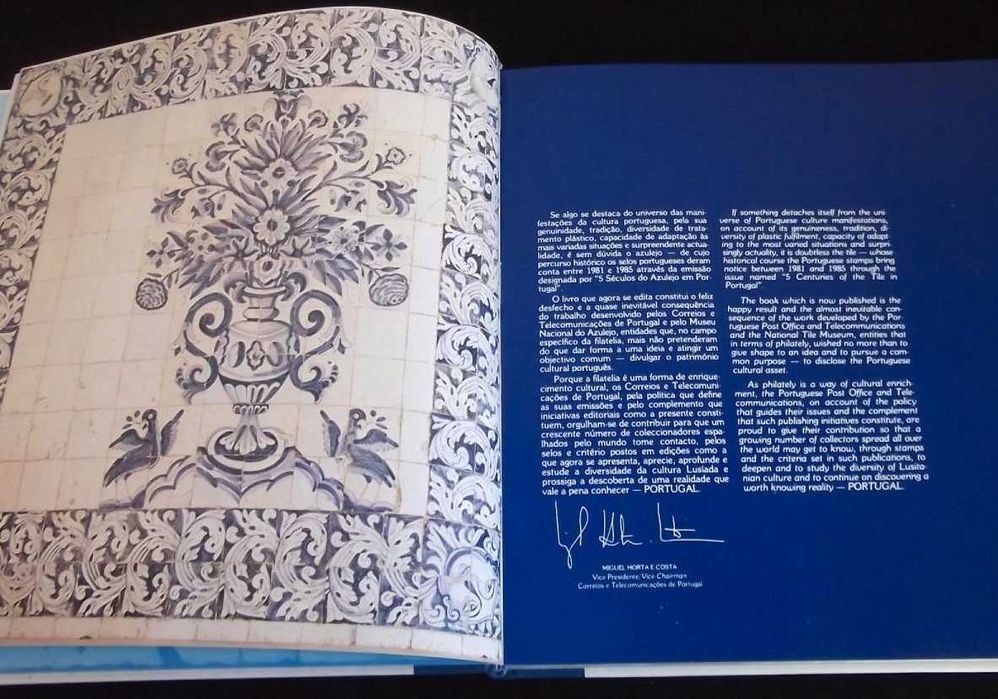 Se algo se destaca do universo das mani-
festações da cultura portuguesa, pela sua
genuinidade, tradição, diversidade de trata-
mento plástico, capacidade de adaptação às
mais variadas situações e surpreendente actua-
lidade, é sem dúvida o azulejo — de cujo
percurso histórico os selos portugueses deram
conta entre 1981 e 1985 através da emissão
designada por "5 Séculos do Azulejo em Por-
tugal".
O livro que agora se edita constitui o feliz
desfecho e a quase inevitável consequência
do trabalho desenvolvido pelos Correios e
Telecomunicações de Portugal e pelo Museu
Nacional do Azulejo, entidades que, no campo
específico da filatelia, mais não pretenderam
do que dar forma a uma ideia e atingir um
objectivo comum — divulgar o património
cultural português.
Porque a filatelia é uma forma de enrique-
cimento cultural, os Correios e Telecomuni-
cações de Portugal, pela política que define
as suas emissões e pelo complemento que
iniciativas editoriais como a presente consti-
tuem, orgulham-se de contribuir para que um
crescente número de coleccionadores espa-
lhados pelo mundo tome contacto, pelos
selos e critério postos em edições como a
que agora se apresenta, aprecie, aprofunde e
estude a diversidade da cultura Lusíada e
prossiga a descoberta de uma realidade que
vale a pena conhecer — PORTUGAL.
MIGUEL HORTA E COSTA
Vice Presidente/Vice Chairman
Correios e Telecomunicações de Portugal
If something detaches itself from the uni-
verse of Portuguese culture manifestations,
on account of its genuineness, tradition, di-
versity of plastic fulfilment, capacity of adapt-
ing to the most varied situations and surpri-
singly actuality, it is doubtless the tile — whose
historical course the Portuguese stamps bring
notice between 1981 and 1985 through the
issue named "5 Centuries of the Tile in
Portugal".
The book which is now published is the
happy result and the almost inevitable con-
sequence of the work developed by the Por-
tuguese Post Office and Telecommunications
and the National Tile Museum, entities that
in terms of philately, wished no more than to
give shape to an idea and to pursue a com-
mon purpose — to disclose the Portuguese
cultural asset.
As philately is a way of cultural enrich-
ment, the Portuguese Post Office and Tele-
communications, on account of the policy
that guides their issues and the complement
that such publishing initiatives constitute, are
proud to give their contribution so that a
growing number of collectors spread all over
the world may get to know, through stamps
and the criteria set in such publications, to
deepen and to study the diversity of Lusita-
nian culture and to continue on discovering a
worth knowing reality — PORTUGAL.